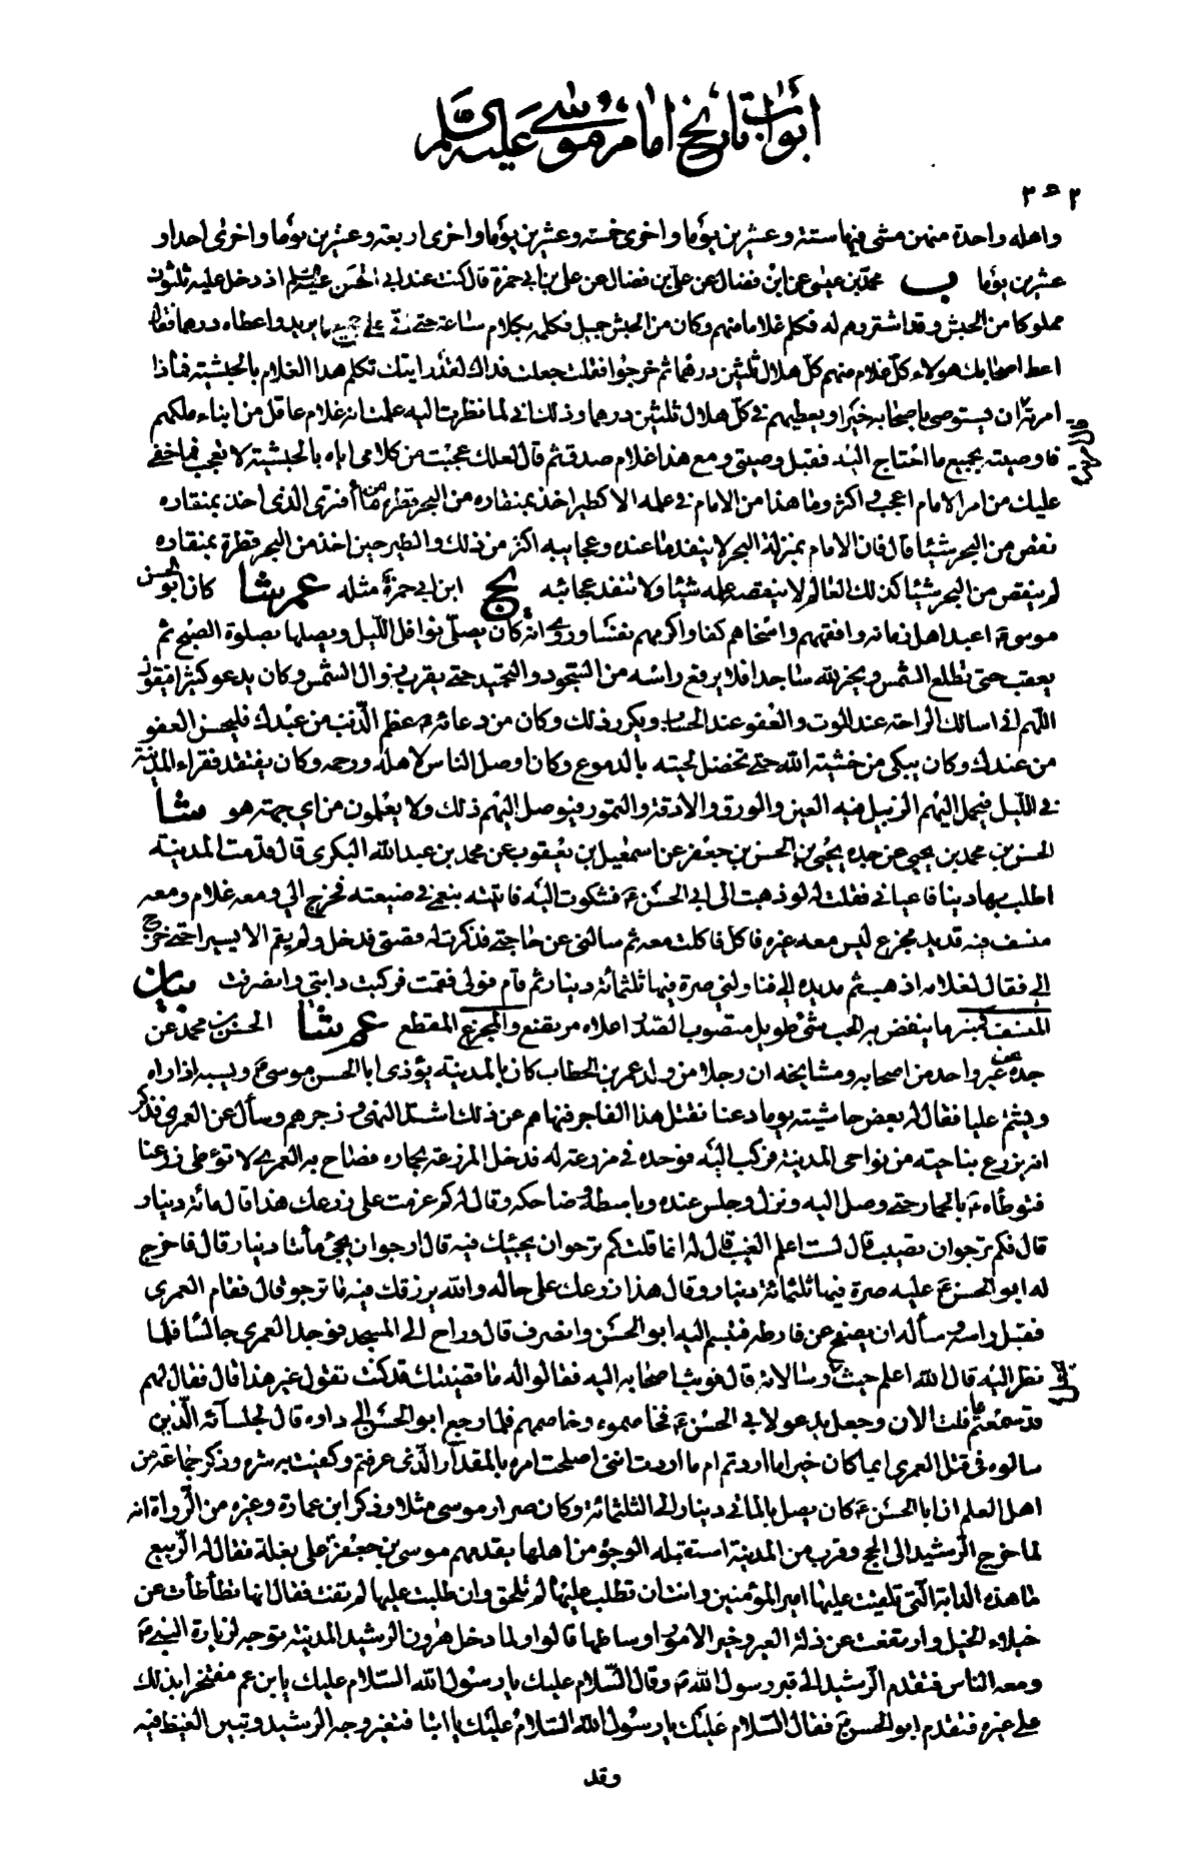 أبواب تاريخ امام موسى عليه السلم
٢٥٢
واهله واحدة منهن مشى فيها ستة وعشرين يوما واخرى خمسة وعشرين يوما واخرى اربعة وعشرين يوما واخرى احدا و
عشرين يوما ب محمد بن عيسى عن ابن فضال عن علي بن ابي حمزة قال كنت عند ابي الحسن عليه السلم اذ دخل عليه ثلثون
مملوكا من الحبش وقد اشتروهم له فكلم غلاما منهم وكان من الحبش جميل فكلمه بكلام ساعة حتى على جميع ما يريد واعطاه درهما فقال
اعط اصحابك هؤلاء كل غلام منهم كل هلال ثلثين درهما ثم خرجوا فقلت جعلت فداك لقد رايتك تكلم هذا الغلام بالحبشية فماذا
امرته ان يستوصى باصحابه خيرا ويعطيهم في كل هلال ثلثين درهما وذلك اني لما نظرت اليه علمت انه غلام عاقل من ابناء ملكهم
فاوصيته بجميع ما احتاج اليه فقبل وصيتي ومع هذا غلام صدق ثم قال لعلك عجبت من كلامي اياه بالحبشية لا تعجب فما خفي
عليك من امر الامام اعجب واكثر وما هذا من الامام في علمه الا كطير اخذ بمنقاره من البحر قطرة من ماء أفترى الذي اخذ بمنقاره
نقص من البحر شيئا قال فان الامام بمنزلة البحر لا ينفد ما عنده وعجايبه اكثر من ذلك والطير حين اخذ من البحر قطرة بمنقاره
لم ينقص من البحر شيئا كذلك العالم لا ينقصه علمه شيئا ولا تنفد عجائبه يج ابن ابي حمزة مثله عم شا كان ابو الحسن
موسى ع اعبد اهل زمانه وافقههم واسخاهم كفا واكرمهم نفسا وروى انه كان يصلى نوافل الليل ويصلها بصلوة الصبح ثم
يعقب حتى تطلع الشمس ويخر لله ساجدا فلا يرفع راسه من السجود والتحميد حتى يقرب زوال الشمس وكان يدعو كثيرا فيقول
اللهم اني اسالك الراحة عند الموت والعفو عند الحساب ويكرر ذلك وكان من دعائه ع عظم الذنب من عبدك فليحسن العفو
من عندك وكان يبكى من خشية الله حتى تخضل لحيته بالدموع وكان اوصل الناس لاهله ورحمه وكان يفتقد فقراء المدينة
في الليل فيحمل اليهم الزنبيل فيه العين والورق والادقة والتمور فيوصل اليهم ذلك ولا يعلمون من اي جهة هو شا
الحسن بن محمد بن يحيى عن جده يحيى بن الحسن بن جعفر عن اسمعيل بن يعقوب عن محمد بن عبدالله البكرى قال قدمت المدينة
اطلب بها دينا فاعياني فقلت لو ذهبت الى ابي الحسن ع فشكوت اليه فاتيته بنقمى في ضيعته فخرج الي ومعه غلام ومعه
منسف فيه قديد مجزع ليس معه غيره فاكل فاكلت معه ثم سالني عن حاجتي فذكرت له قصتي فدخل ولم يقم الا يسيرا حتى خرج
الي فقال لغلامه اذهب ثم مد يده الي فناولني صرة فيها ثلثمائة دينار ثم قام فولى فقمت فركبت دابتي وانصرفت بيان
المنسف كمنبر ما ينفض به الحب شئ طويل منصوب الصدر اعلاه مرتفع والمجزع المقطع عم شا الحسن بن محمد عن
جده عن غير واحد من اصحابه ومشايخه ان رجلا من ولد عمر بن الخطاب كان بالمدينة يؤذى ابا الحسن موسى ع ويسبه اذا راه
ويشتم عليا فقال له بعض حاشيته يوما دعنا نقتل هذا الفاجر فنهاهم عن ذلك اشد النهى وزجرهم وسأل عن العمري فذكر
انه يزرع بناحية من نواحى المدينة فركب اليه فوجده في مزرعة له فدخل المزرعة بحماره فصاح به العمري لا توطى زرعنا
فتوطأه ع بالحمار حتى وصل اليه ونزل وجلس عنده وباسطه وضاحكه وقال له كم غرمت على زرعك هذا قال مائة دينار
قال فكم ترجوان تصيب قال لست اعلم الغيب قال له انما قلت كم ترجوان يجيئك فيه قال ارجوان يجئ مأتا دينار قال فاخرج
له ابو الحسن ع عليه صرة فيها ثلثمائة دينار وقال هذا زرعك على حاله والله يرزقك فيه ما ترجو قال فقام العمرى
فقبل راسه وسأله ان يصفح عن فارطه فتبسم اليه ابو الحسن وانصرف قال وراح الى المسجد فوجد العمرى جالسا فلما
نظر اليه قال الله اعلم حيث يجعل رسالاته قال فوثب اصحابه اليه فقالوا له ما قضيتك قد كنت تقول غير هذا قال فقال لهم
قد سمعتم ما قلت الان وجعل يدعو لابي الحسن ع فخاصموه وخاصمهم فلما رجع ابو الحسن الى داره قال لجلسائه الذين
سالوه في قتل العمرى ايما كان خير اما اردتم ام ما اردت انني اصلحت امره بالمقدار الذي عرفتم وكفيت به شره وذكر جماعة من
اهل العلم ان ابا الحسن ع كان يصل بالمائى دينار الى الثلثمائة وكان صرار موسى مثلا وذكر ابن عمارة وغيره من الرواة انه
لما خرج الرشيد الى الحج وقرب من المدينة استقبله الوجوه من اهلها يقدمهم موسى بن جعفر ع على بغلة فقال له الربيع
ما هذه الدابة التى تلقيت عليها امير المؤمنين وانت ان تطلب عليها لم تلحق وان طلبت عليها لم تفت فقال انها تطأطأت عن
خيلاء الخيل وارتفعت عن ذلة العير وخير الامور اوساطها قالوا ولما دخل هرون الرشيد المدينة توجه لزيارة النبي ص
ومعه الناس فتقدم الرشيد الى قبر رسول الله ص وقال السلام عليك يا رسول الله السلام عليك يابن عم مفتخرا بذلك
على غيره فتقدم ابو الحسن ع فقال السلام عليك يا رسول الله السلام عليك يا ابتا فتغير وجه الرشيد وتبين الغيظ فيه
وقد